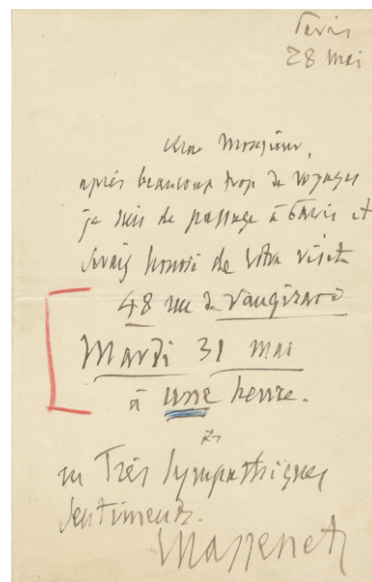 Paris
28 Mai
Cher Monsieur,
après beaucoup trop de voyages
je suis de passage à Paris et
serais honoré de votre visite
48 rue de Vaugirard
Mardi 31 mai
à une heure.
en Très sympathiques
sentiments.
Massenet